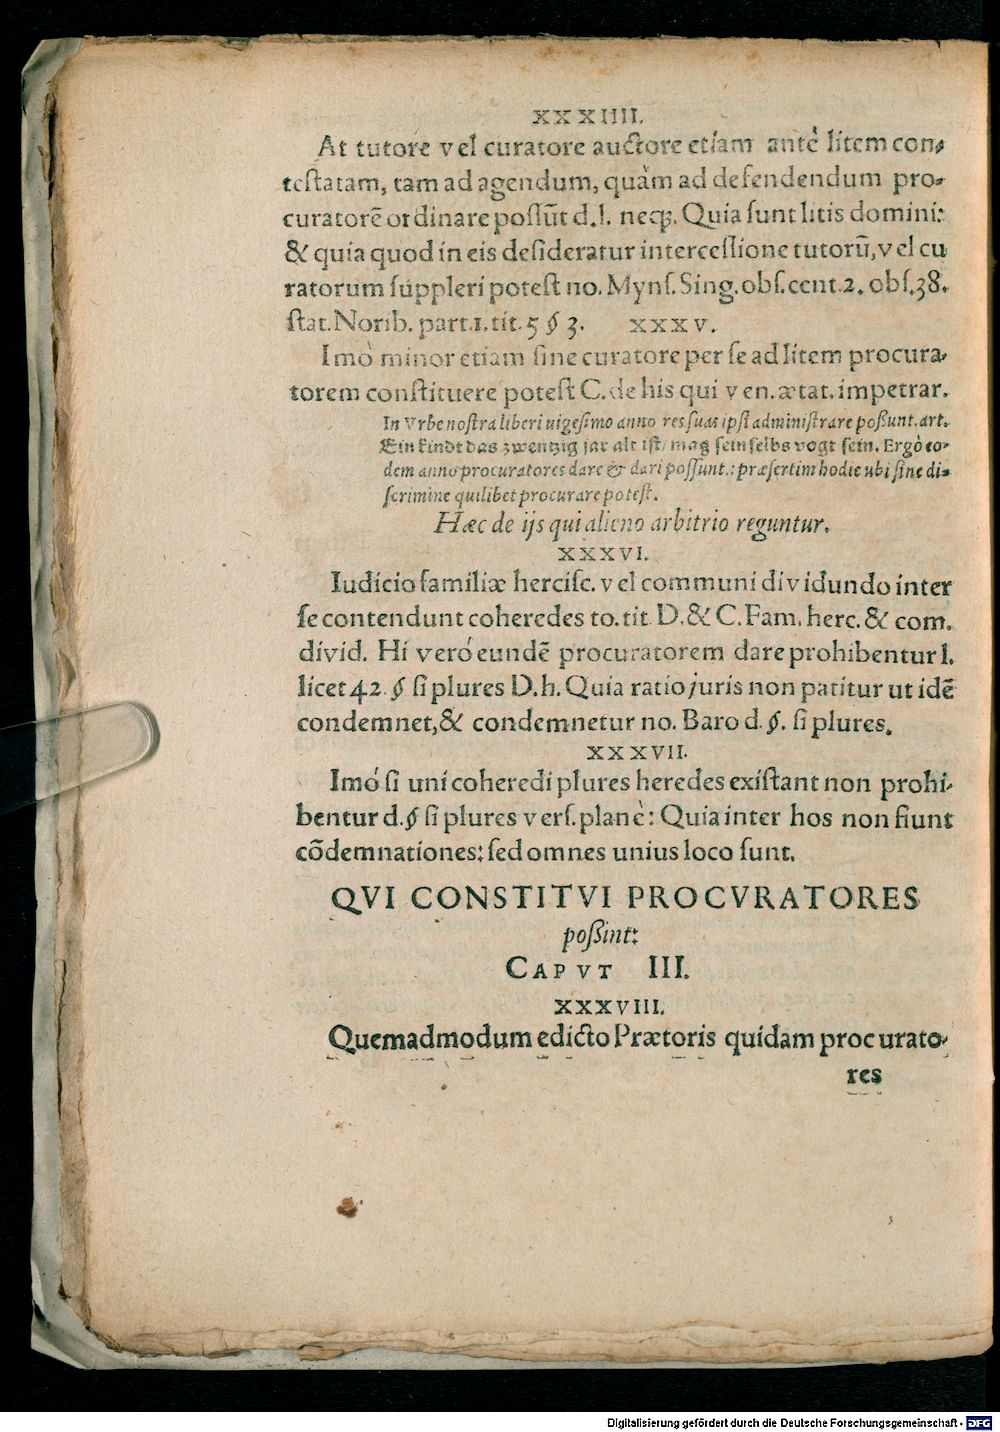 XXXIIII.
At tutore vel curatore auctore etiam antè litem con-
testatam, tam ad agendum, quàm ad defendendum pro-
curatorē ordinare possūt d. l. neq;. Quia sunt litis domini:
& quia quod in eis desideratur intercessione tutorū, vel cu
ratorum suppleri potest no. Myns. Sing. obs. cent. 2. obs. 38.
stat. Norib. part. 1. tit. 5 § 3. XXXV.
Imò minor etiam sine curatore per se ad litem procura-
torem constituere potest C. de his qui ven. ætat. impetrar.
In Vrbe nostra liberi uigesimo anno res suas ipsi administrare poßunt. art.
Ein kindt das zwentzig jar alt ist/ mag sein selbs vogt sein. Ergò eo-
dem anno procuratores dare & dari possunt.: præsertim hodie ubi sine di-
scrimine quilibet procurare potest.
Hæc de ijs qui alieno arbitrio reguntur.
XXXVI.
Iudicio familiæ hercisc. vel communi dividundo inter
se contendunt coheredes to. tit. D. & C. Fam. herc. & com.
divid. Hi veró eundē procuratorem dare prohibentur l.
licet 42. § si plures D. h. Quia ratio juris non patitur ut idē
condemnet, & condemnetur no. Baro d. §. si plures.
XXXVII.
Imó si uni coheredi plures heredes existant non prohi-
bentur d. § si plures vers. planè: Quia inter hos non fiunt
cōdemnationes: sed omnes unius loco sunt.
QVI CONSTITVI PROCVRATORES
poßint:
CAPVT III.
XXXVIII.
Quemadmodum edicto Prætoris quidam procurato-
res
Digitalisierung gefördert durch die Deutsche Forschungsgemeinschaft - DFG